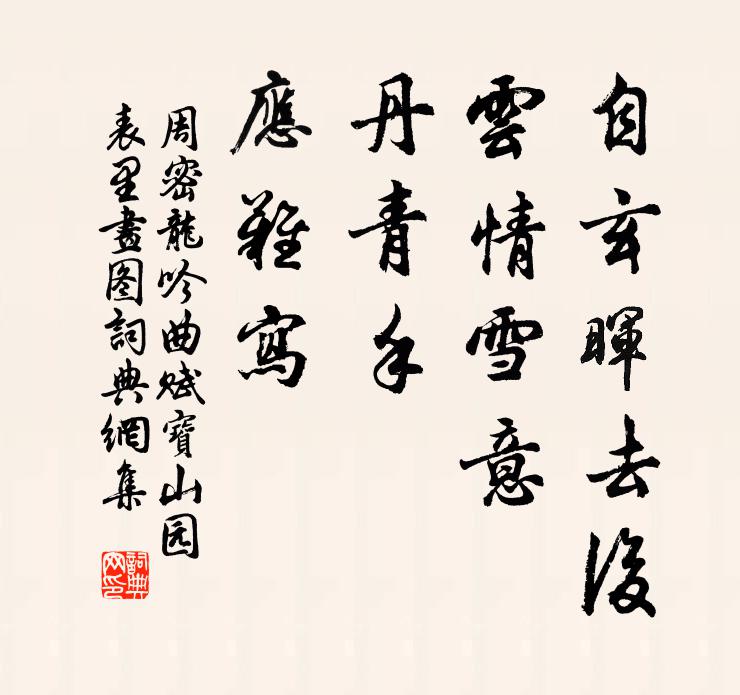 自玄暉去後
雲情雪意
丹青手
應難寫
周密龍吟曲賦寶山园
表里畫图詞典網集
詞典网印